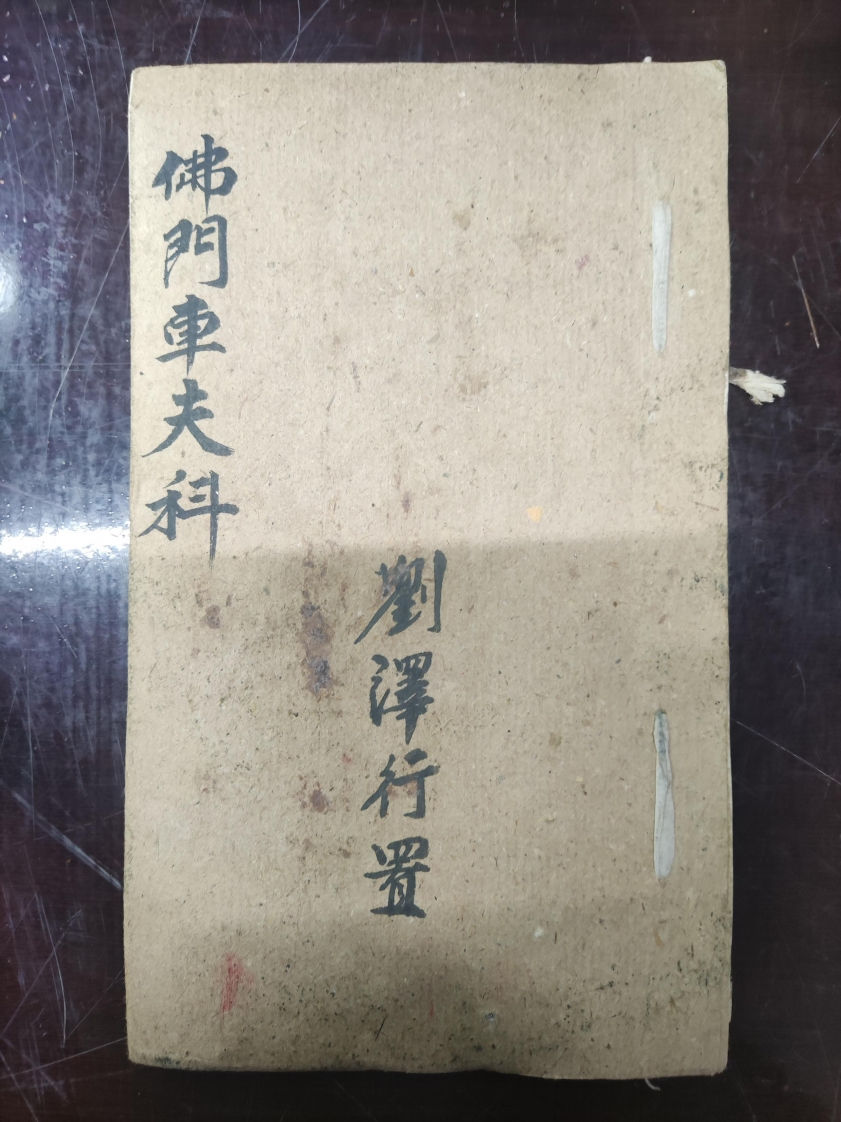 佛門車夫科
劉澤行置